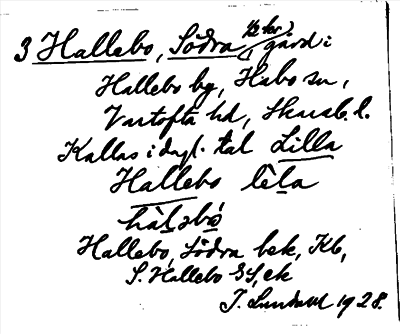 3 Hallebo, Södra (1/2 kr.) gård i
Hallebo by, Habo sn,
Vartofta hd, Skarab. l.
Kallas i dagl. tal Lilla
Hallebo lèta
hàləbó
Hallebo, Södra bek, Kb,
S. Hallebo GS, ek
J. Lundahl 1928.